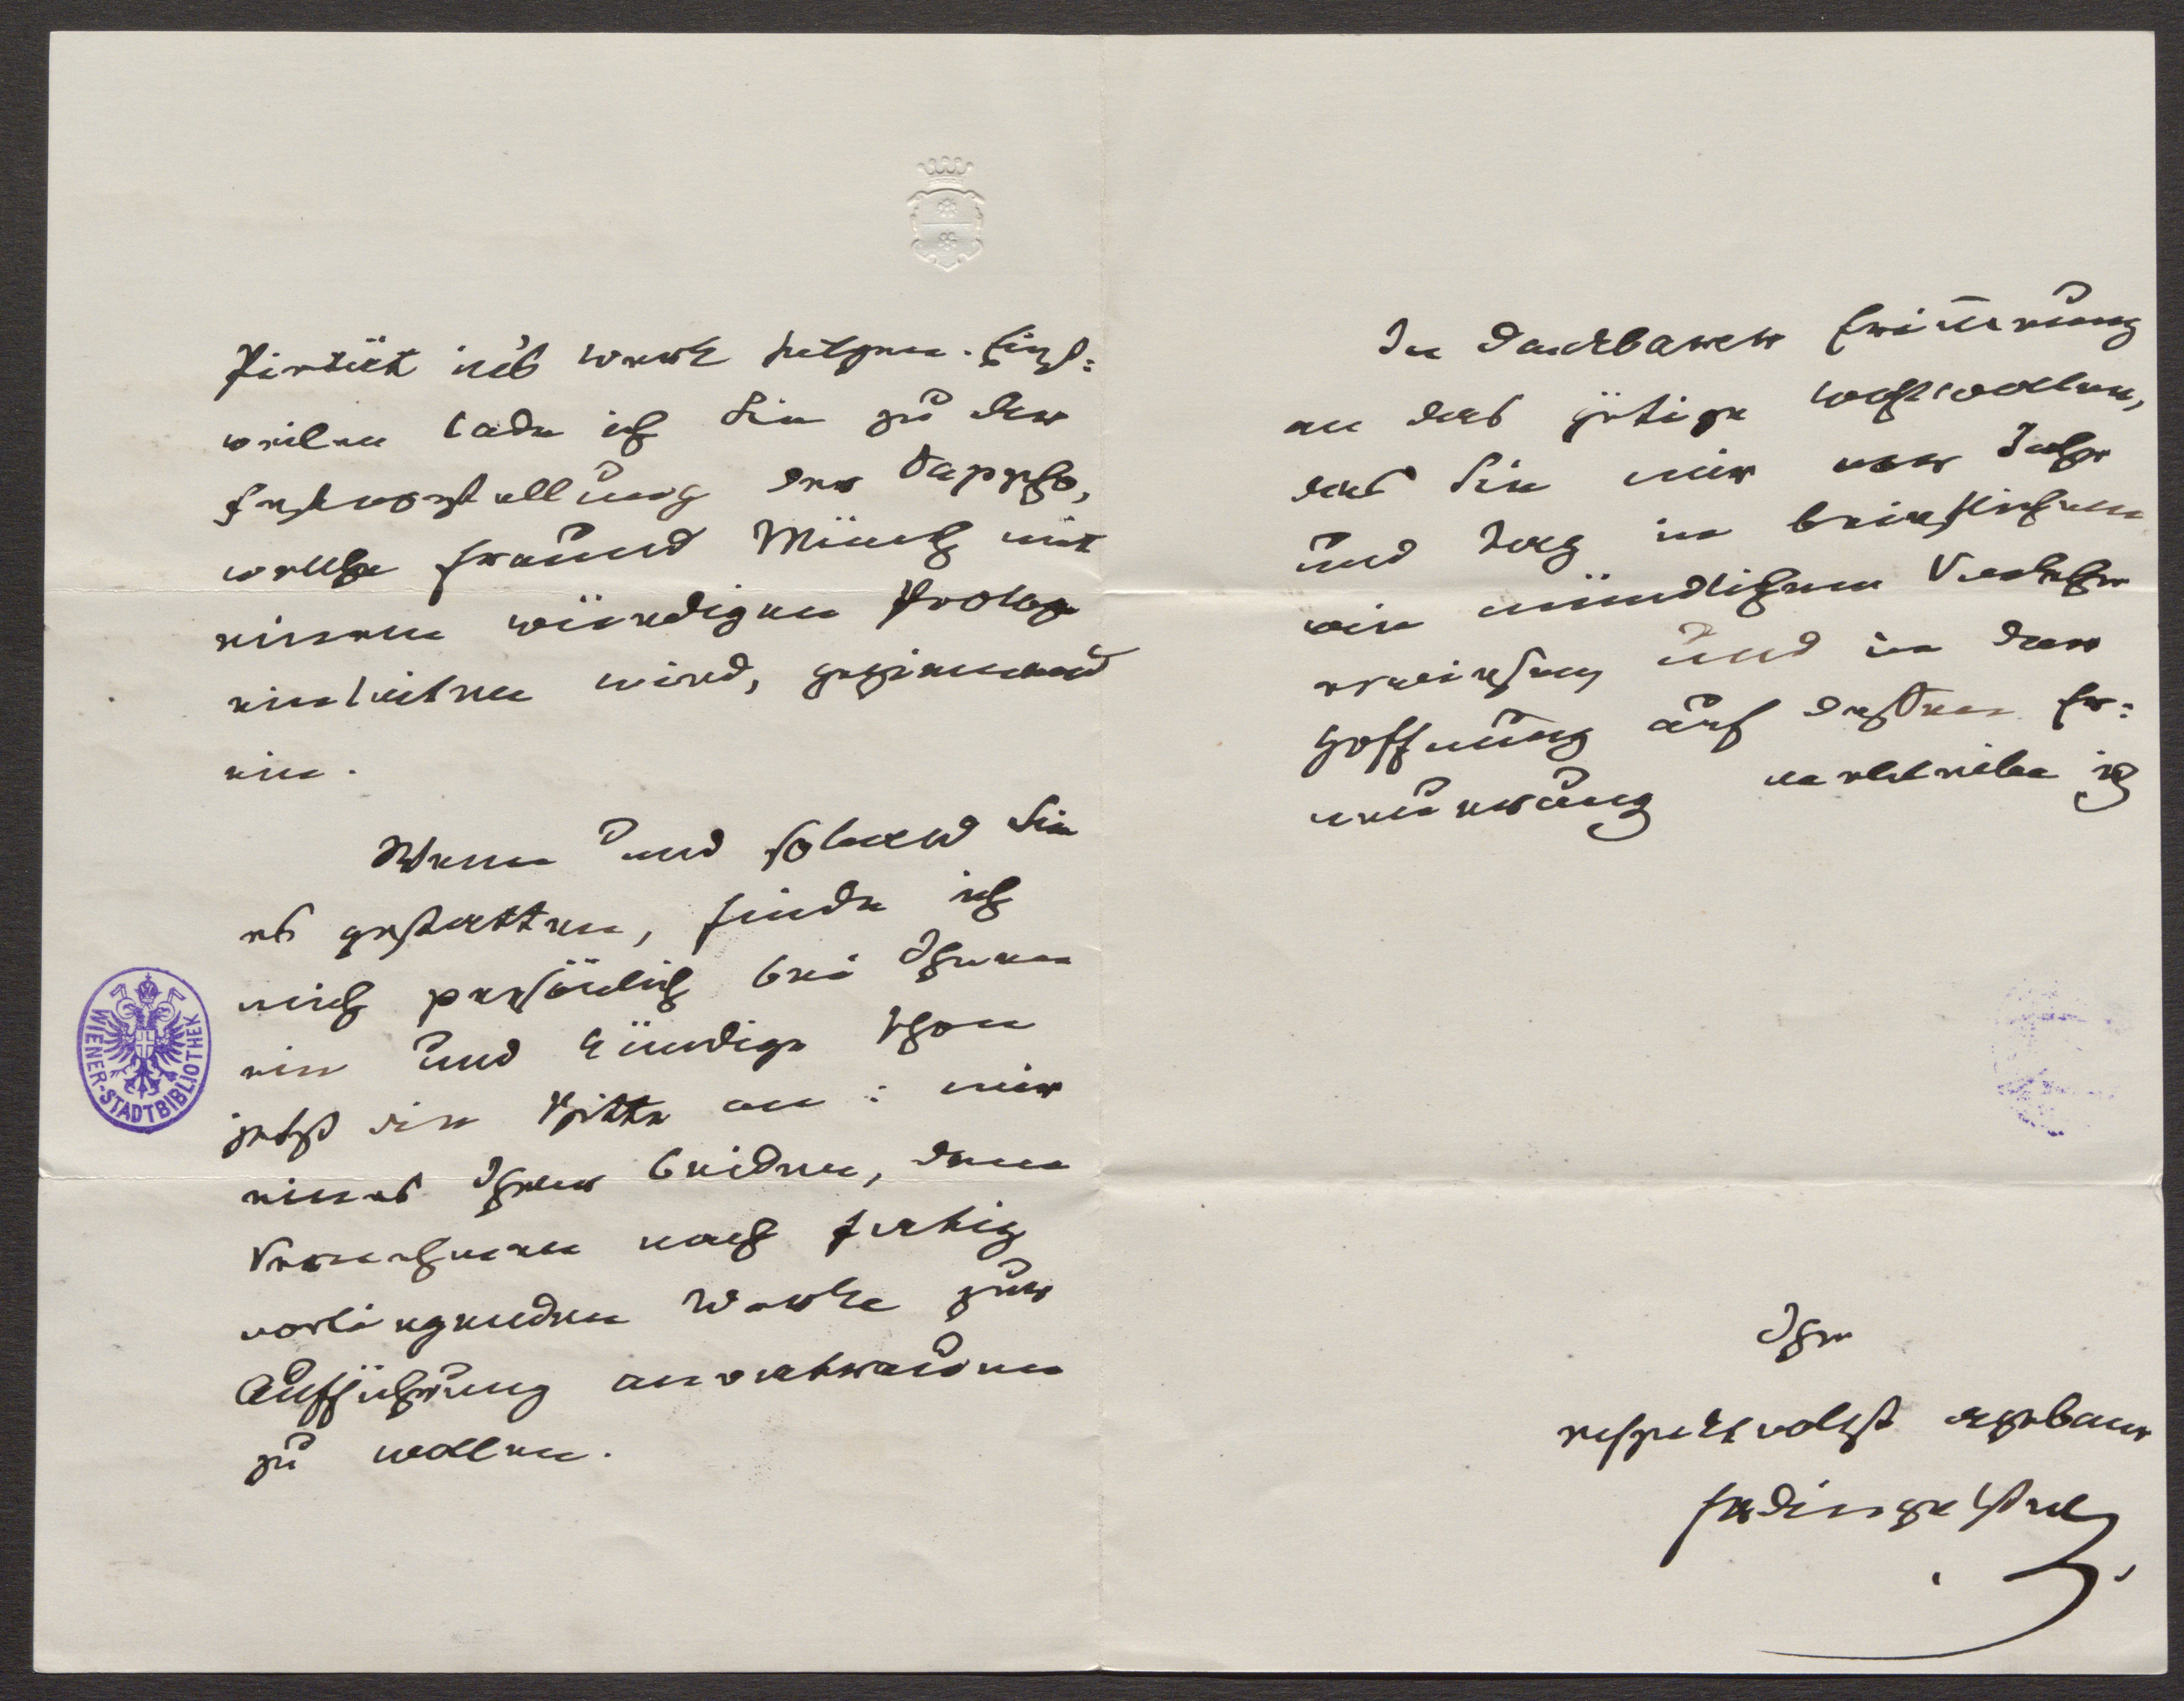 Pietät in's Werk setzen. Einst=
weilen lade ich Sie zu der
Festvorstellung der Sappho,
welche Freund Münch mit
einem würdigen Prologe
einleiten wird, geziemend
ein.
Wenn und sobald Sie
es gestatten, finde ich
mich persönlich bei Ihnen
ein und kündige schon
jetzt die Bitte an: mir
eines Ihrer beiden, dem
Vernehmen nach fertig
vorliegenden Werke zur
Aufführung anvertrauen
zu wollen.
WIENER-STADTBIBLIOTHEK
In dankbarer Erinnerung
an das gütige Wohlwollen,
das Sie mir vor Jahr
und Tag in brieflichem
wie mündlichem Verkehr
erwiesen, und in der
Hoffnung auf dessen Er=
neuerung verbleibe ich
Ihr
respektvollst ergebener
Fr Dingelstedt